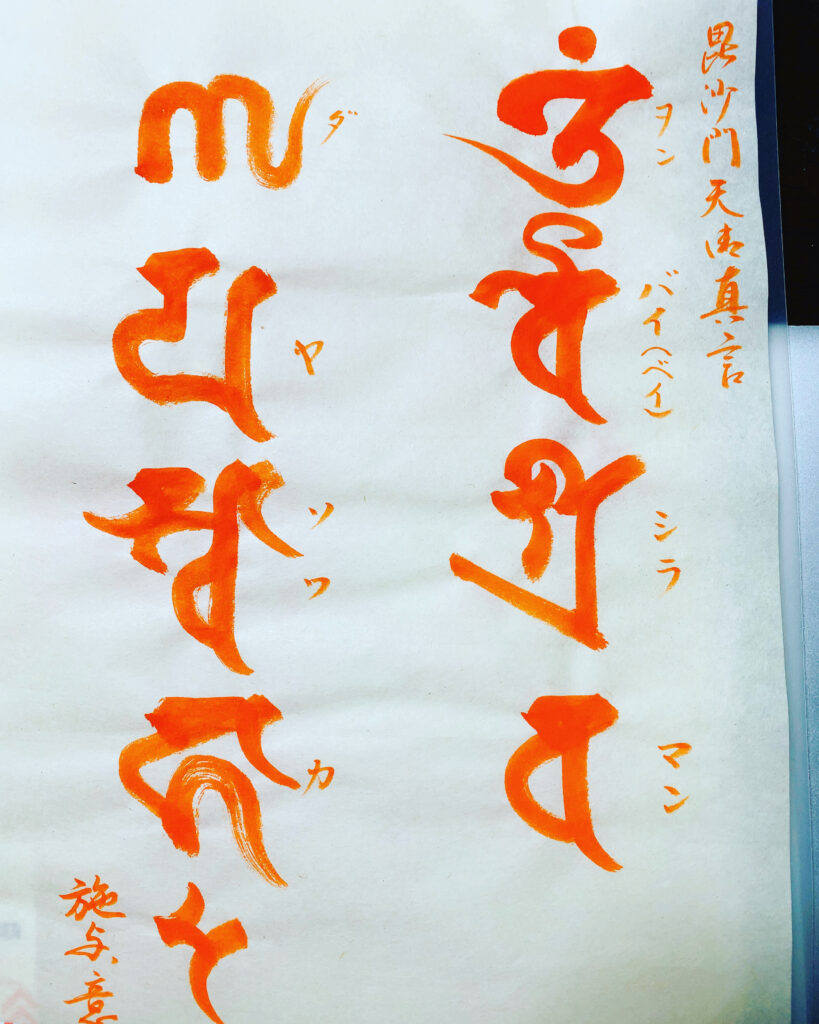 毘沙門天御真言
ヲン バイ(ベイ) シラ マン
𑖌𑖼 𑖪𑖹 𑖫𑖿𑖨 𑖪
ダ ヤ ソワ カ
𑖜 𑖧 𑖭𑖿𑖪𑖯 𑖮𑖯
施与意